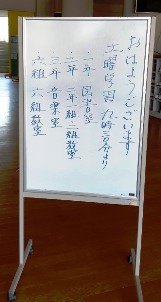 おはようございます
土曜学習 九時三〇分より
・一年 図書室
・二年 二年一組二組教室
・三年 音楽室
・六組 六組教室